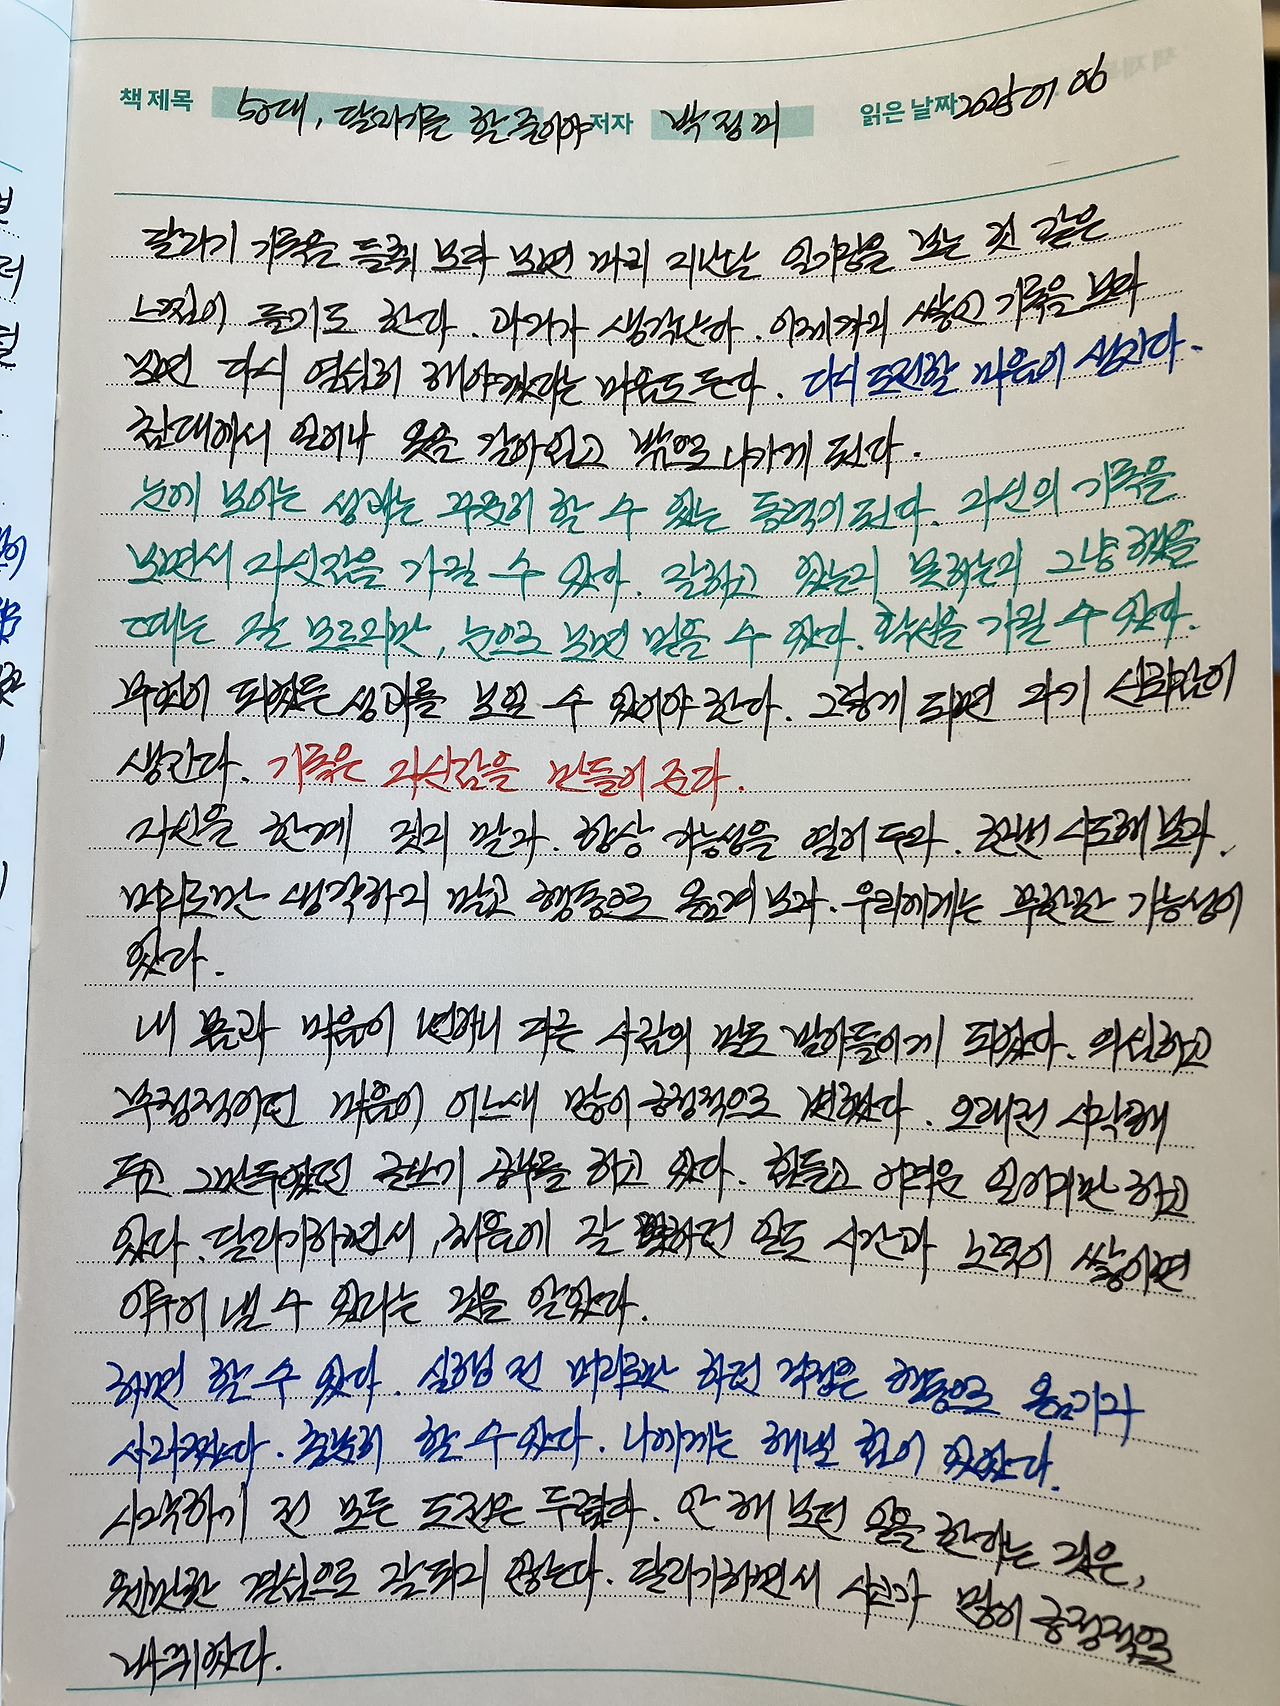 책 제목 50대, 달리기를 할 줄이야 저자 박정미 읽은 날짜 2025 01 06
달리기 기록을 들춰 보다 보면 마치 지난날 일기장을 보는 것 같은
느낌이 들기도 한다. 과거가 생각난다. 이제까지 쌓인 기록을 보다
보면 다시 열심히 해야겠다는 마음도 든다. 다시 도전할 마음이 생긴다.
침대에서 일어나 옷을 갈아입고 밖으로 나가게 된다.
눈에 보이는 성과는 꾸준히 할 수 있는 동력이 된다. 자신의 기록을
보면서 자신감을 가질 수 있다. 잘하고 있는지 못하는지 그냥 했을
때는 잘 모르지만, 눈으로 보면 믿을 수 있다. 확신을 가질 수 있다.
무엇이 되었든 성과를 보일 수 있어야 한다. 그렇게 되면 자기 신뢰감이
생긴다. 기록은 자신감을 만들어 준다.
자신을 한계 짓지 말라. 항상 가능성을 열어 두라. 한번 시도해 보라.
머리로만 생각하지 말고 행동으로 옮겨 보라. 우리에게는 무한한 가능성이
있다.
내 몸과 마음이 변하니 다른 사람의 말도 받아들이게 되었다. 의심하고
부정적이던 마음이 어느새 많이 긍정적으로 변했다. 오래전 시작해
두고 그만두었던 글쓰기 공부를 하고 있다. 힘들고 어려운 일이지만 하고
있다. 달리기하면서, 처음에 잘 못하던 일도 시간과 노력이 쌓이면
이루어 낼 수 있다는 것을 알았다.
하면 할 수 있다. 실행 전 머리로만 하던 걱정은 행동으로 옮기자
사라졌다. 충분히 할 수 있다. 나에게는 해낼 힘이 있었다.
시작하기 전 모든 도전은 두렵다. 안 해 보던 일을 한다는 것은,
웬만한 결심으로 잘 되지 않는다. 달리기하면서 사고가 많이 긍정적으로
바뀌었다.